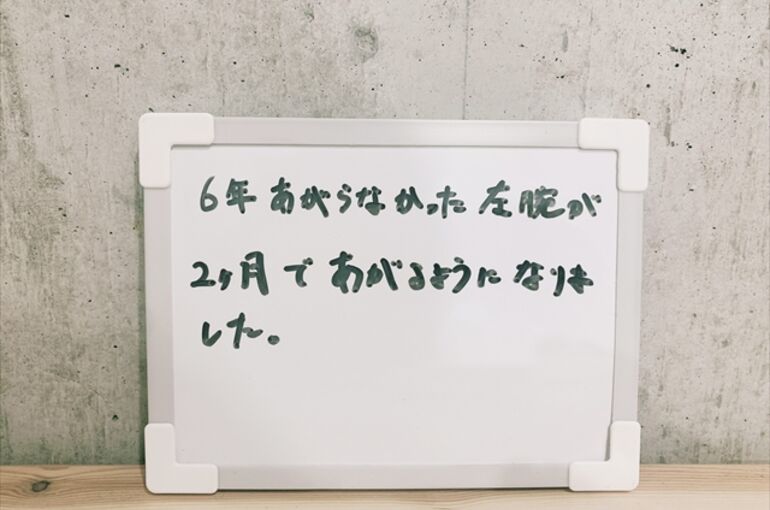 6年あがらなかった左腕が
2ヶ月であがるようになりま
した。